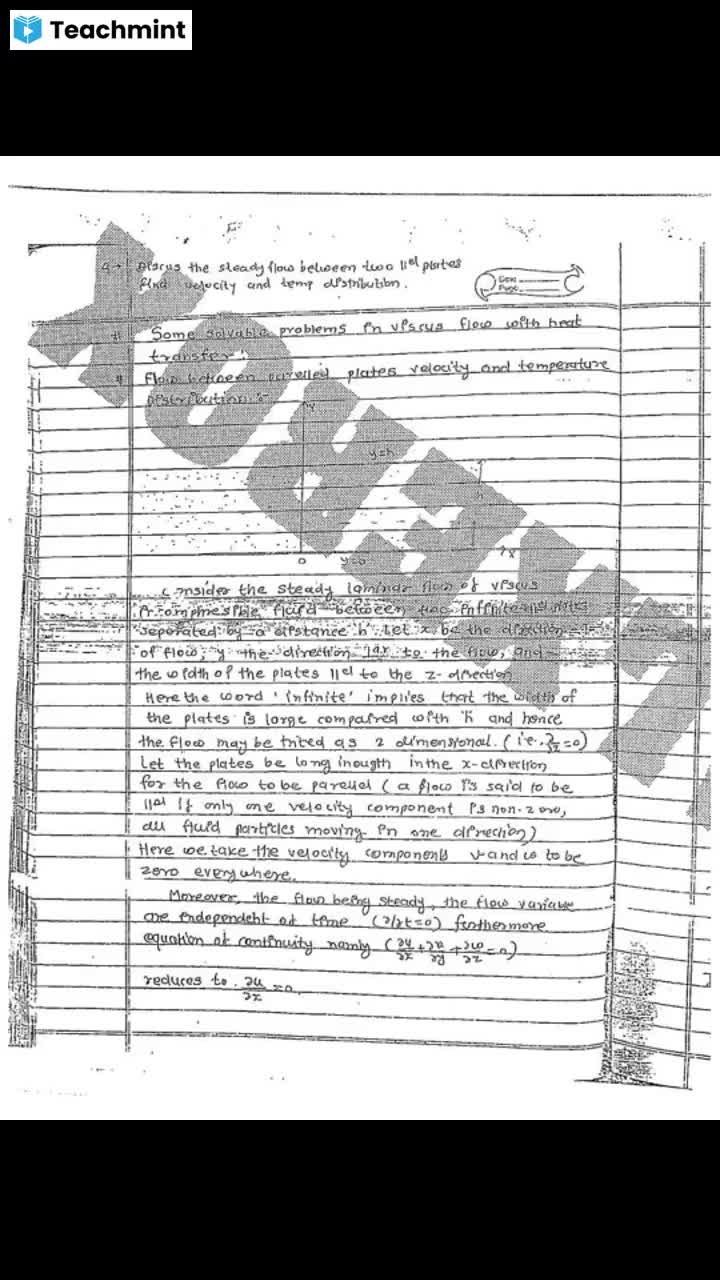 Teachmint
Q→ Discus the steady flow between two 11el plates
find velocity and temp distribution.
Date
Page
# Some solvable problems in viscus flow with heat
transfer :-
# Flow between parelled plates velocity and temperature
Distribution :-
y
y=h
h
0 y=0 x
Consider the steady laminar flow of viscus
incompressible fluid between two infinite 11el plates
seperated by a distance 'h'. Let x be the direction
of flow, y the direction 1ar to the flow, and
the width of the plates 11el to the z-direction
Here the word 'infinite' implies that the width of
the plates is large compaired with 'h' and hence
the flow may be trited as 2 dimensional. (i.e., ∂/∂z=0)
Let the plates be long inougth in the x-direction
for the flow to be parellel ( a flow is said to be
11el if only one velocity component is non-zero,
all fluid particles moving in one direction)
Here we take the velocity components v and w to be
zero everywhere.
Moreover, the flow being steady, the flow variable
are independent of time (∂/∂t=0) furthermore
equation of continuity namly (∂u/∂x+∂v/∂y+∂w/∂z=0)
reduces to ∂u/∂x=0
XEROX